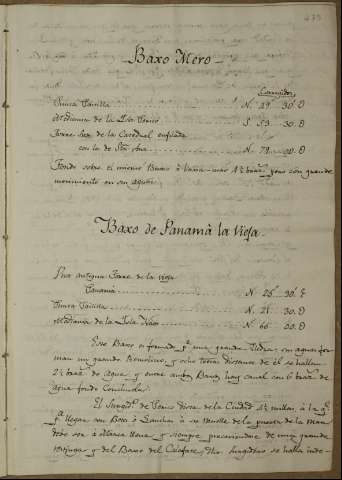 Baxo Mero
Corregidos
Punta Paitilla N. 29 30' O
Mediania de la Isla Perico S. 53 30. O
Torre Sur. de la Catedral enfilada
con la de Sta. Ana N. 72 00. O
Fondo sobre el mismo Baxo à Baxa-mar 1½ braz. pero con grande
movimiento en sus aguas.
Baxo de Panamá la Vieja
Por antigua Torre de la vieja
Panamá N. 26 30' E
Punta Paitilla N. 21 30. O
Mediania de la Isla N. 66 20. O
Este Baxo es formado pr. una grande Piedra, sus aguas for
man un grande Remolino, y ocho toesas distante de él se hallan
2½ braz. de Agua, y entre ambos Baxos hay canal con 6 braz. de
agua fondo Conchuela.
El Surgid.o de Perico dista de la Ciudad 2½ millas, à la q.e
llegan con Bote ò Lanchas à su Muelle de la puerta de la mar
debe ser à Marea llena y siempre precaviendose de una grande
restinga y del Baxo del se halla inde